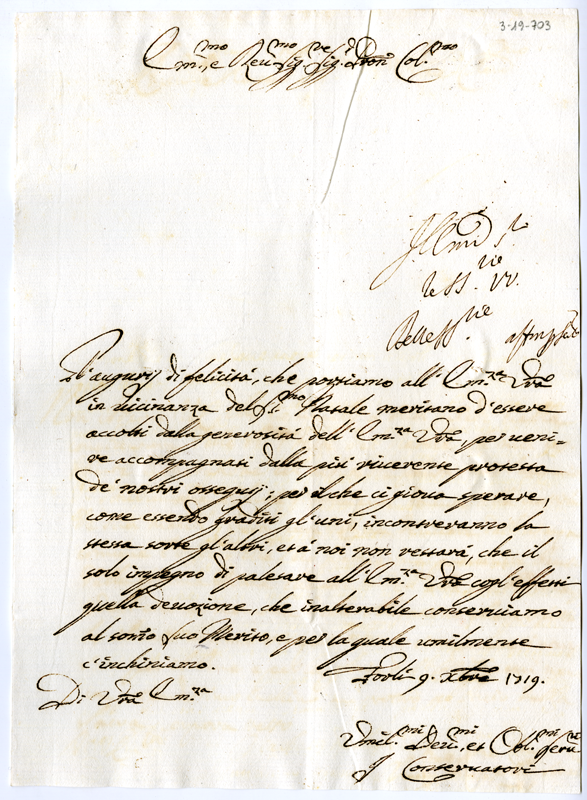 3-19-703
Em.mo e Reu.mo Sig.re Sig.r Pron Col.mo
Ill.mi S.ri
le SS. VV.
Delle SS.rie
Gl'augurij di felicitá, che porgiamo all'Em.za Vra
in uicinanza del S.mo Natale meritano d'essere
accolti dalla generositá dell'Em.za Vra per ueni-
re accompagnati dalla piú riuerente protesta
de' nostri ossequij; per il che ci gioua sperare,
come essendo graditi gl'uni, incontreranno la
stessa sorte gl'altri, et á noi non restará, che il
solo impegno di palesare all'Em.za Vra cogl'effetti
quella deuozione, che inalterabile conseruiamo
al som̃o suo Merito, e per la quale umilmente
c'inchiniamo. Forlì 9. Xbre 1719.
Di Vra Em.za
Umil.mi Deu.mi, et Obl.mi Seru.ri
J Conseruatori